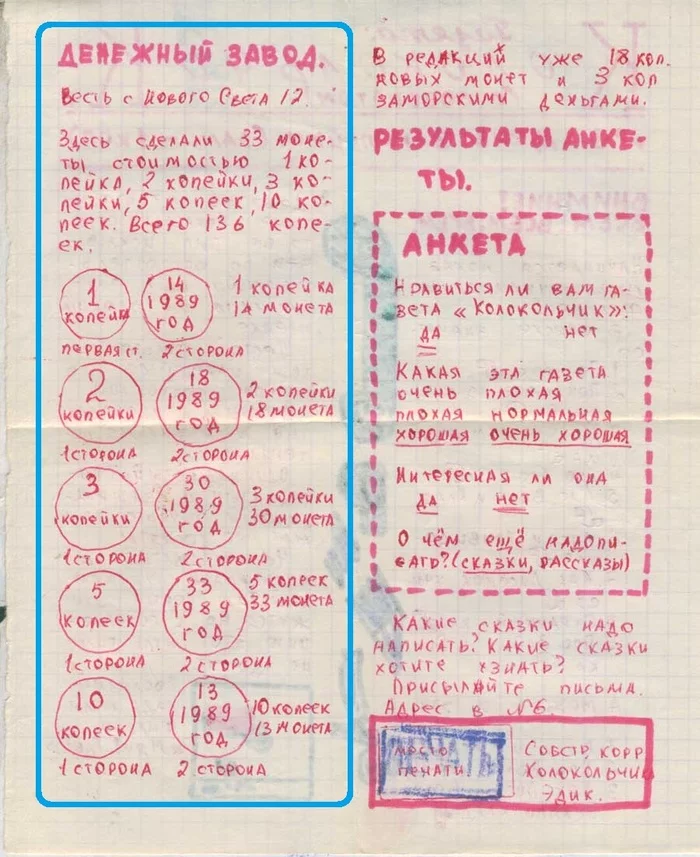 ДЕНЕЖНЫЙ ЗАВОД.
Весть с Нового Света 12.
Здесь сделали 33 моне-
ты стоимостью 1 ко-
пейка, 2 копейки, 3 ко-
пейки, 5 копеек, 10 ко-
пеек. Всего 136 копе-
ек.
1 копейка
14 1989 год
1 копейка
14 монета
первая ст. 2 сторона
2 копейки
18 1989 год
2 копейки
18 монета
1 сторона 2 сторона
3 копейки
30 1989 год
3 копейки
30 монета
1 сторона 2 сторона
5 копеек
33 1989 год
5 копеек
33 монета
1 сторона 2 сторона
10 копеек
13 1989 год
10 копеек
13 монета
1 сторона 2 сторона
В редакций уже 18 коп.
новых монет и 3 коп
заморскими деньгами.
РЕЗУЛЬТАТЫ АНКЕ-
ТЫ.
АНКЕТА
Нравиться ли вам га-
зета «Колокольчик»?
да нет
Какая эта газета
очень плохая
плохая нормальная
хорошая очень хорошая
Интересная ли она
да нет
О чём ещё надо пи-
сать? (сказки, рассказы)
Какие сказки надо
написать? Какие сказки
хотите узнать?
Присылайте письма.
Адрес в №6.
место
печати
ПЕЧАТЬ
Собств. корр.
Колокольчик
Эдик.